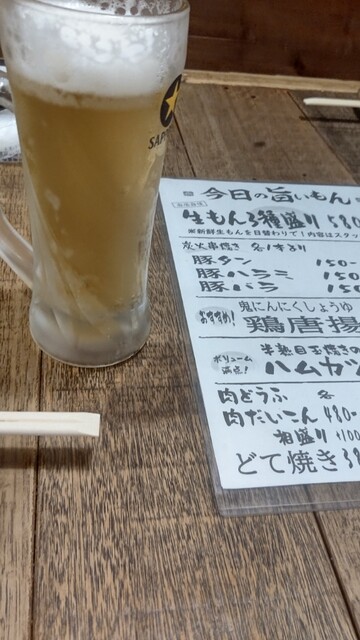 SAPPORO
今日の旨いもん
生もん3種盛り 580
※新鮮生もんを日替わりで!内容はスタッ
炭火串焼き 各1本より
豚タン 150-
豚ハラミ 150-
豚バラ 150-
おすすめ!
鬼にんにくしょうゆ
鶏唐揚
ボリューム満点!
半熟目玉焼きの
ハムカツ
肉どうふ 各
肉だいこん 480
相盛り +100
どて焼き 38